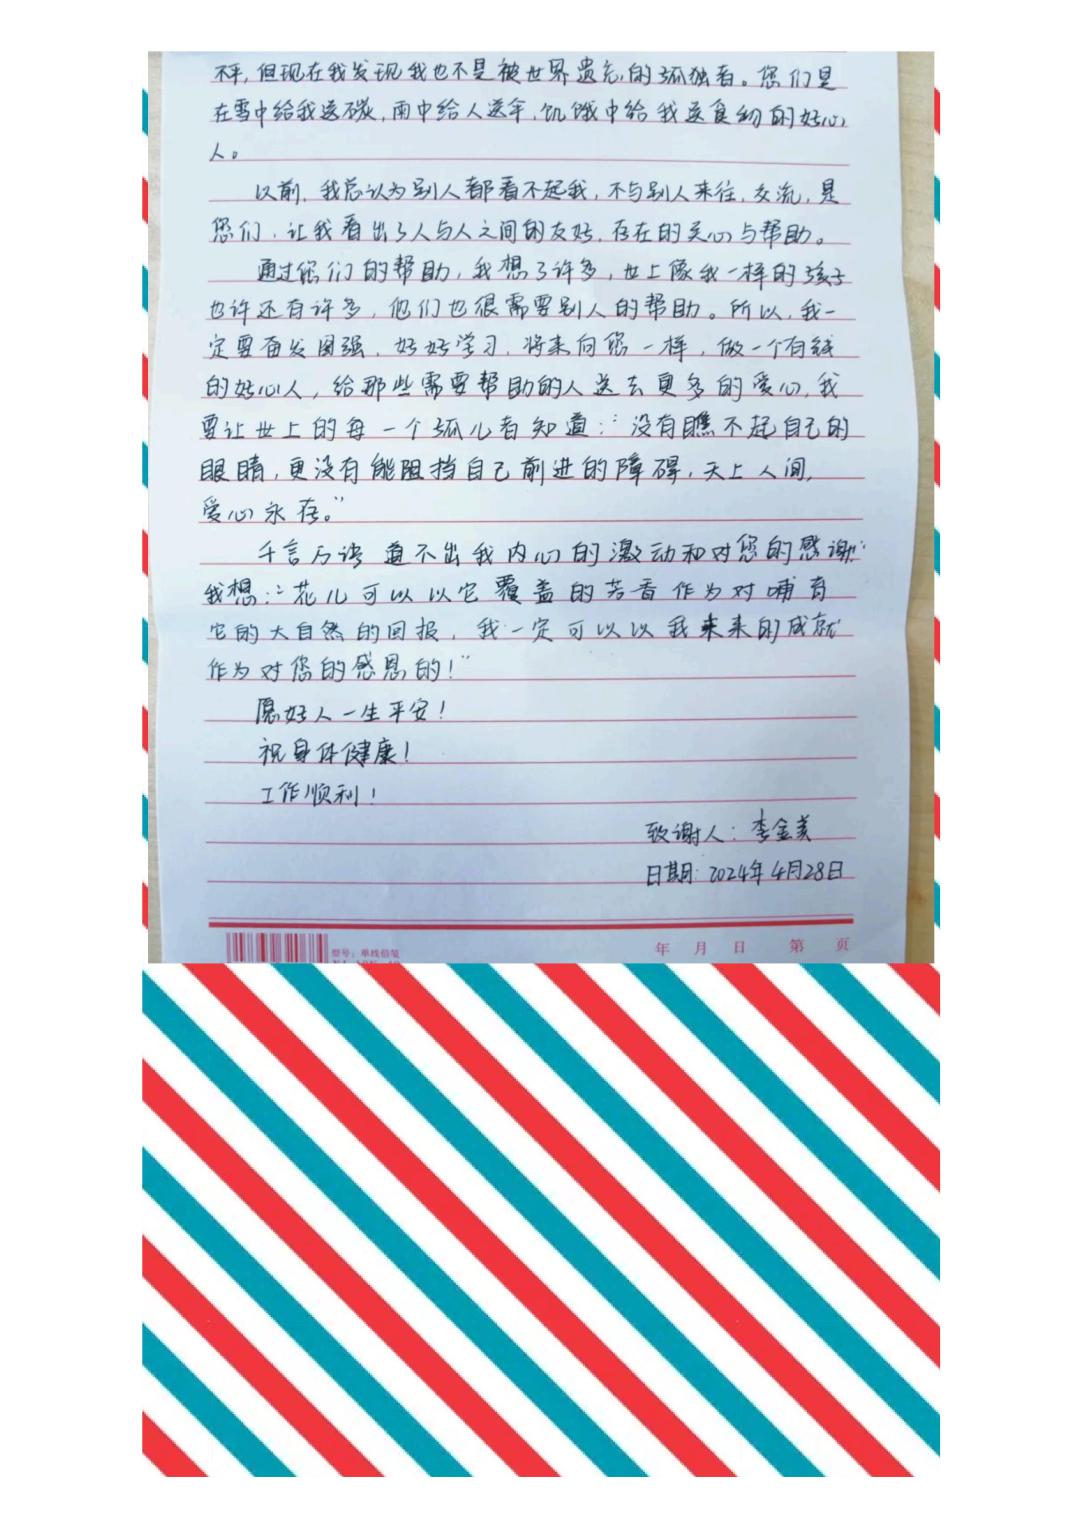 不平,但现在我发现我也不是被世界遗忘的孤独者。您们是
在雪中给我送碳,雨中给人送伞,饥饿中给我送食物的好心
人。
以前,我总认为别人都看不起我,不与别人来往,交流,是
您们,让我看出了人与人之间的友好,存在的关心与帮助。
通过您们的帮助,我想了许多,世上像我一样的孩子
也许还有许多,他们也很需要别人的帮助。所以,我一
定要奋发图强,好好学习,将来向您一样,做一个有钱
的好心人,给那些需要帮助的人送去更多的爱心,我
要让世上的每一个孤儿者知道:“没有瞧不起自己的
眼睛,更没有能阻挡自己前进的障碍,天上人间,
爱心永存。”
千言万语道不出我内心的激动和对您的感谢
我想:“花儿可以以它覆盖的芳香作为对哺育
它的大自然的回报,我一定可以以我未来的成就
作为对您的感恩的!”
愿好人一生平安!
祝身体健康!
工作顺利!
致谢人:李金美
日期:2024年4月28日
型号:单线信笺
年 月 日 第 页